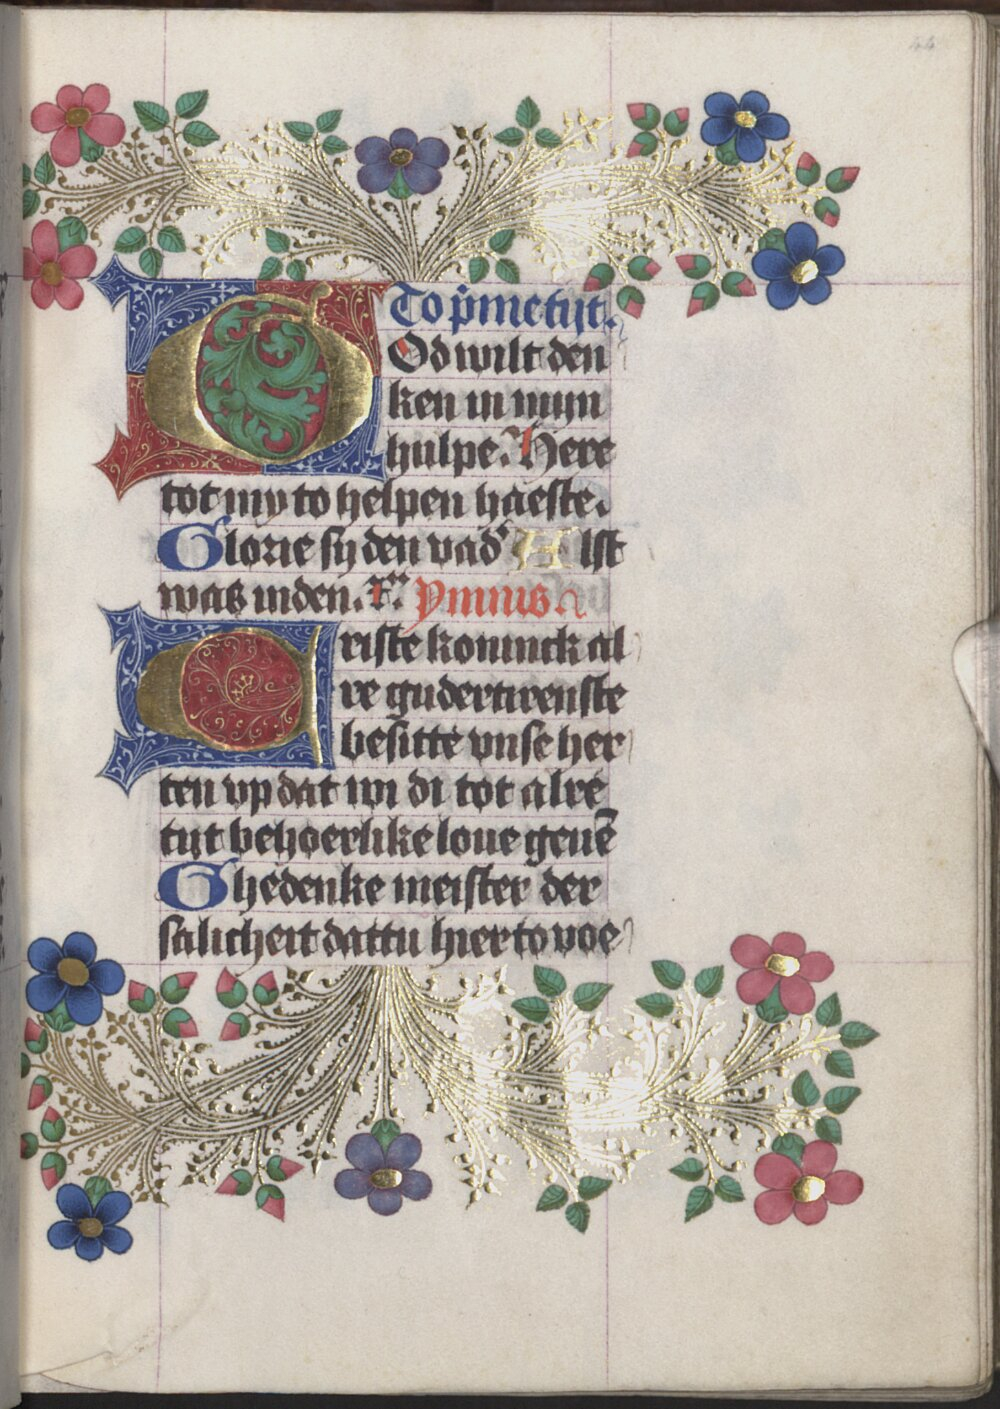 44
To p̄metijt.
God wilt den
ken in mijn
hulpe. Here
tot my to helpen haeste.
Glorie sy den vad' Alst
was inden. xc. ymnus.
Criste koninck al
re guderti renste
besitte vnse her
ten vp dat wi di tot alre
tijt behoerlike loue geuē
Ghedenke meister der
salicheit dattu hier to voe